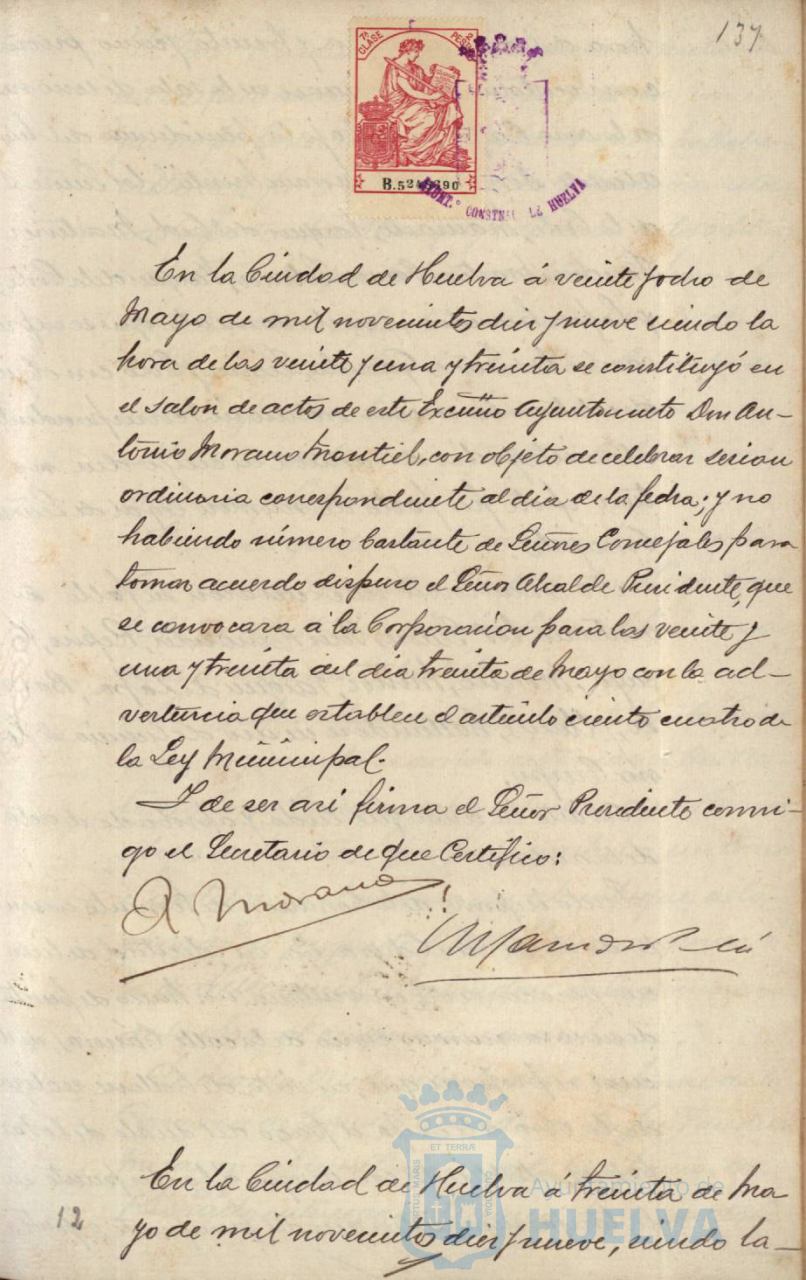 137
7ª CLASE 2 PESE
B.5
AYUNT.º CONSTNAL DE HUELVA
En la Ciudad de Huelva á veinte y ocho de
Mayo de mil novecientos diez y nueve siendo la
hora de las veinte y una y treinta se constituyó en
el salon de actos de este Excmo Ayuntamiento Don An-
tonio Morano Montiel, con objeto de celebrar sesion
ordinaria correspondiente al dia de la fecha; y no
habiendo número bastante de Señores Concejales para
tomar acuerdo dispuso el Señor Alcalde Presidente, que
se convocara á la Corporacion para las veinte y
una y treinta del dia treinta de Mayo con la ad-
vertencia que establece el artículo ciento cuatro de
la Ley Municipal.
Y de ser asi firma el Señor Presidente conmi-
go el Secretario de que Certifico:
A Morano
En la Ciudad de Huelva á treinta de Ma
yo de mil novecientos diez y nueve, siendo la
12
ET TERRÆ
Ayuntamiento de
HUELVA